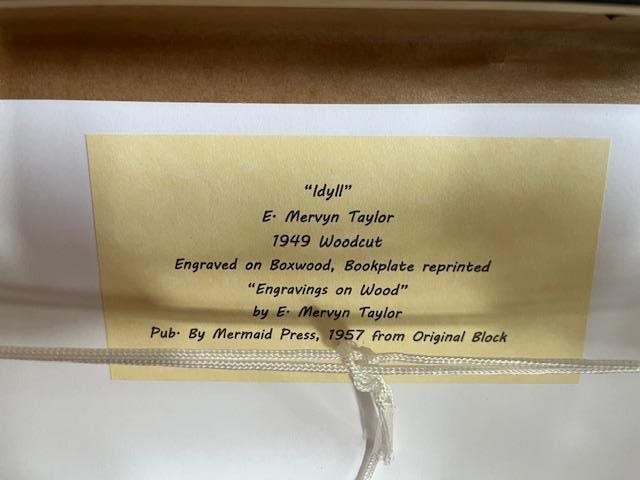 "Idyll"
E. Mervyn Taylor
1949 Woodcut
Engraved on Boxwood, Bookplate reprinted
"Engravings on Wood"
by E. Mervyn Taylor
Pub. By Mermaid Press, 1957 from Original Block